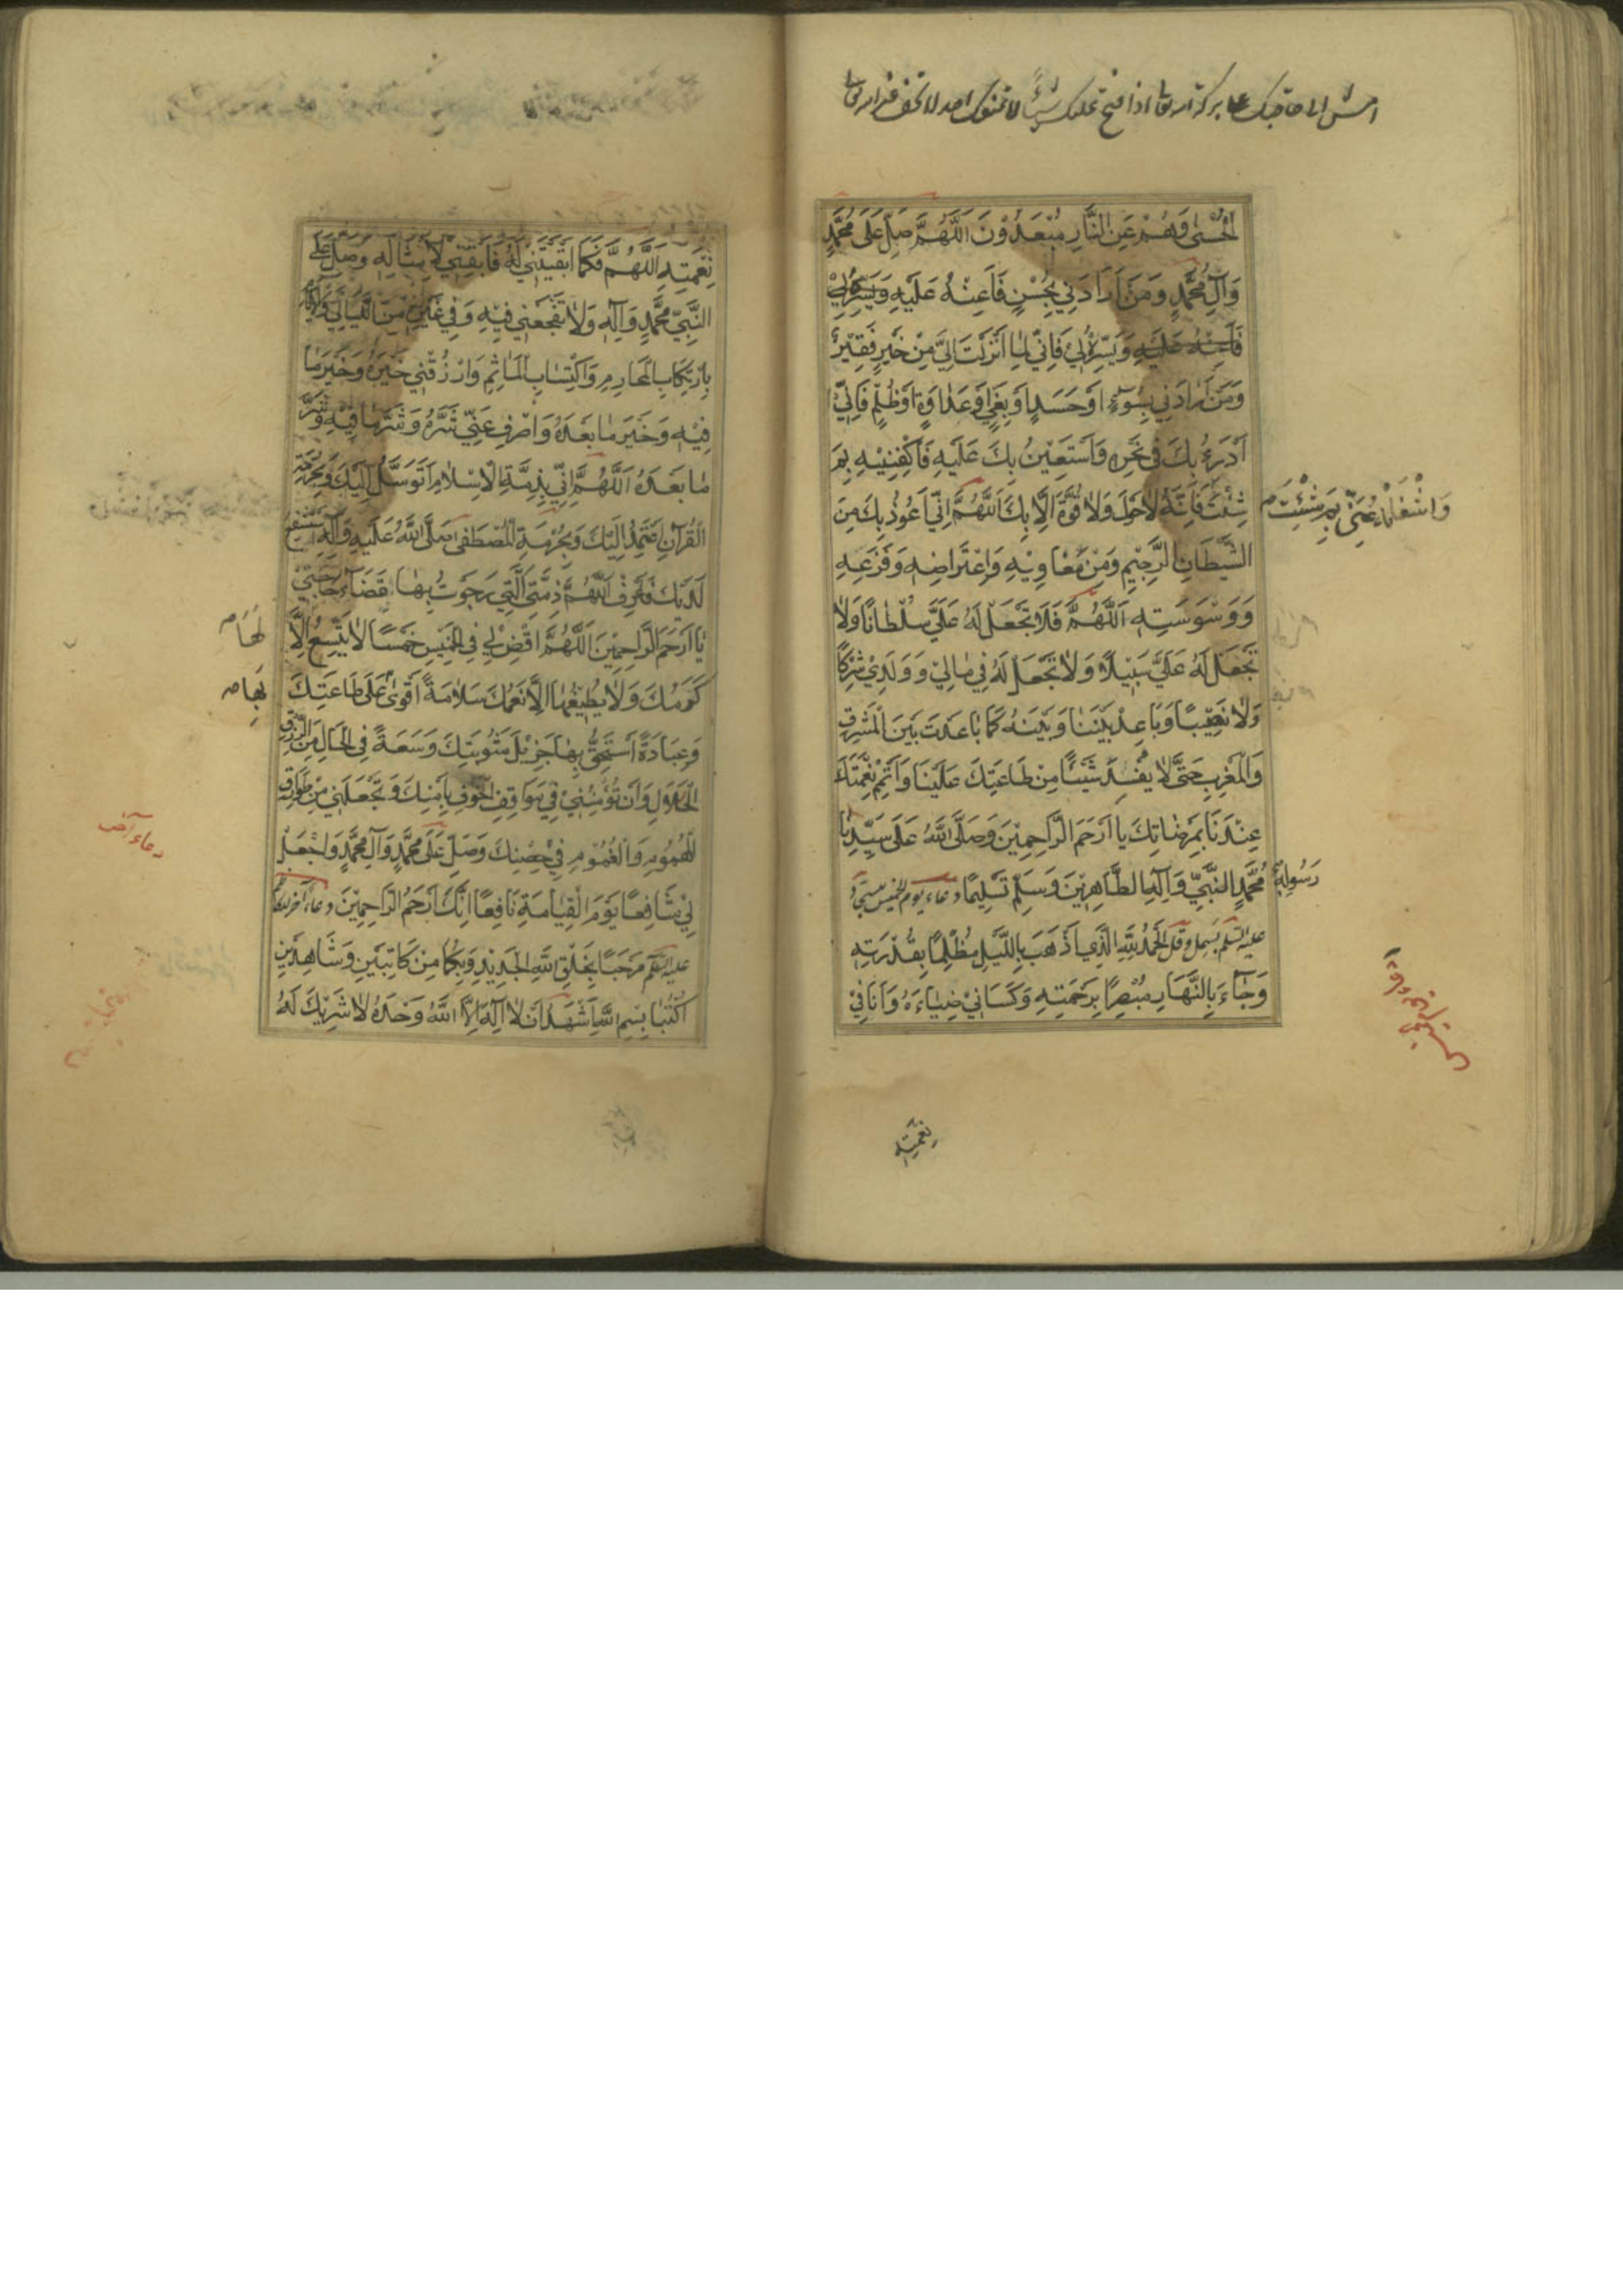 امش الى حاجتك على بركة الله تعالى اذا فتح عليك شيئًا لا تمنعك احد لا تخف غير الله تعالى
الْحُسْنٰى وَهُمْ عَنِ النَّارِ مُبْعَدُوْنَ اَللّٰهُمَّ صَلِّ عَلَى مُحَمَّدٍ
وَآلِ مُحَمَّدٍ وَمَنْ اَرَادَنِي بِحُسْنٍ فَاَعِنْهُ عَلَيْهِ وَيَسِّرْهُ لِيْ
فَاَعِنْهُ عَلَيْهِ وَيَسِّرْهُ لِيْ فَاِنِّيْ لِمَا اَنْزَلْتَ اِلَيَّ مِنْ خَيْرٍ فَقِيْرٌ
وَمَنْ اَرَادَنِي بِسُوْءٍ اَوْ حَسَدٍ اَوْ بَغْيٍ اَوْ عَدَاوَةٍ اَوْ ظُلْمٍ فَاِنِّيْ
اَدْرَءُ بِكَ فِي نَحْرِهِ وَاَسْتَعِيْنُ بِكَ عَلَيْهِ فَاكْفِنِيْهِ بِمَ
شِئْتَ فَاِنَّهُ لَا حَوْلَ وَلَا قُوَّةَ اِلَّا بِكَ اَللّٰهُمَّ اِنِّيْ اَعُوْذُ بِكَ مِنَ
وَاشْغَلْهُ عَنِّيْ بِمَ شِئْتَ
الشَّيْطَانِ الرَّجِيْمِ وَمِنْ مَغَاوِيْهِ وَاعْتِرَاضِهِ وَفَزَعِهِ
وَوَسْوَسَتِهِ اَللّٰهُمَّ فَلَا تَجْعَلْ لَهُ عَلَيَّ سُلْطَانًا وَلَا
تَجْعَلْ لَهُ عَلَيَّ سَبِيْلًا وَلَا تَجْعَلْ لَهُ فِي مَالِيْ وَوَلَدِيْ شِرْكًا
وَلَا نَصِيْبًا وَبَاعِدْ بَيْنَنَا وَبَيْنَهُ كَمَا بَاعَدْتَ بَيْنَ الْمَشْرِقِ
وَالْمَغْرِبِ حَتَّى لَا يُفْسِدَ شَيْئًا مِنْ طَاعَتِكَ عَلَيْنَا وَاَتْمِمْ نِعْمَتَكَ
عِنْدَنَا بِمَرْضَاتِكَ يَا اَرْحَمَ الرَّاحِمِيْنَ وَصَلَّى اللّٰهُ عَلَى سَيِّدِنَا
رَسُوْلِهِ مُحَمَّدٍ النَّبِيِّ وَآلِهِ الطَّاهِرِيْنَ وَسَلِّمْ تَسْلِيْمًا دعاء يوم الخميس
عليه السلم بسمل وقل اَلْحَمْدُ لِلّٰهِ الَّذِي اَذْهَبَ بِاللَّيْلِ مُظْلِمًا بِقُدْرَتِهِ
وَجَآءَ بِالنَّهَارِ مُبْصِرًا بِرَحْمَتِهِ وَكَسَانِيْ ضِيَاءَهُ وَاَنَا فِيْ
نِعْمَتِهِ
نِعْمَتِهِ اَللّٰهُمَّ فَكَمَا اَبْقَيْتَنِيْ لَهُ فَاَبْقِنِيْ لِاَمْثَالِهِ وَصَلِّ عَلَى
النَّبِيِّ مُحَمَّدٍ وَآلِهِ وَلَا تَفْجَعْنِي فِيْهِ وَفِي غَيْرِهِ مِنَ اللَّيَالِي وَالْاَيَّامِ
بِارْتِكَابِ الْمَحَارِمِ وَاكْتِسَابِ الْمَاٰثِمِ وَارْزُقْنِي خَيْرَهُ وَخَيْرَ مَا
فِيْهِ وَخَيْرَ مَا بَعْدَهُ وَاصْرِفْ عَنِّي شَرَّهُ وَشَرَّ مَا فِيْهِ وَشَرَّ
مَا بَعْدَهُ اَللّٰهُمَّ اِنِّي بِذِمَّةِ الْاِسْلَامِ اَتَوَسَّلُ اِلَيْكَ وَبِحُرْمَةِ
الْقُرْآنِ اَعْتَمِدُ اِلَيْكَ وَبِحُرْمَةِ الْمُصْطَفٰى صَلَّى اللّٰهُ عَلَيْهِ وَآلِهِ اَسْتَشْفِعُ
لَدَيْكَ فَاعْرِفْ اَللّٰهُمَّ ذِمَّتِيَ الَّتِي رَجَوْتُ بِهَا قَضَآءَ حَاجَتِيْ
يَا اَرْحَمَ الرَّاحِمِيْنَ اَللّٰهُمَّ اقْضِ لِيْ فِي الْخَمِيْسِ خَمْسًا لَا يَتَّسِعُ اِلَّا
لَهَا
كَرَمُكَ وَلَا يُطِيْقُهَا اِلَّا نِعَمُكَ سَلَامَةً اَقْوٰى عَلَى طَاعَتِكَ
بِهَا
وَعِبَادَةً اَسْتَحِقُّ بِهَا جَزِيْلَ مَثُوْبَتِكَ وَسَعَةً فِي الْحَالِ مِنَ الرِّزْقِ
الْحَلَالِ وَاَنْ تُؤْمِنَنِيْ فِيْ مَوَاقِفِ الْخَوْفِ بِاَمْنِكَ وَتَجْعَلَنِي مِنْ طَوَارِقِ
الْهُمُوْمِ وَالْغُمُوْمِ فِيْ حِصْنِكَ وَصَلِّ عَلَى مُحَمَّدٍ وَآلِ مُحَمَّدٍ وَاجْعَلْ
دعاء آخر
لِيْ شَافِعًا يَوْمَ الْقِيَامَةِ نَافِعًا اِنَّكَ اَرْحَمُ الرَّاحِمِيْنَ دعاء آخر
عليه السلم مَرْحَبًا بِخَلْقِ اللّٰهِ الْجَدِيْدِ وَبِكُمَا مِنْ كَاتِبَيْنِ وَشَاهِدَيْنِ
اُكْتُبَا بِسْمِ اللّٰهِ اَشْهَدُ اَنْ لَا اِلٰهَ اِلَّا اللّٰهُ وَحْدَهُ لَا شَرِيْكَ لَهُ